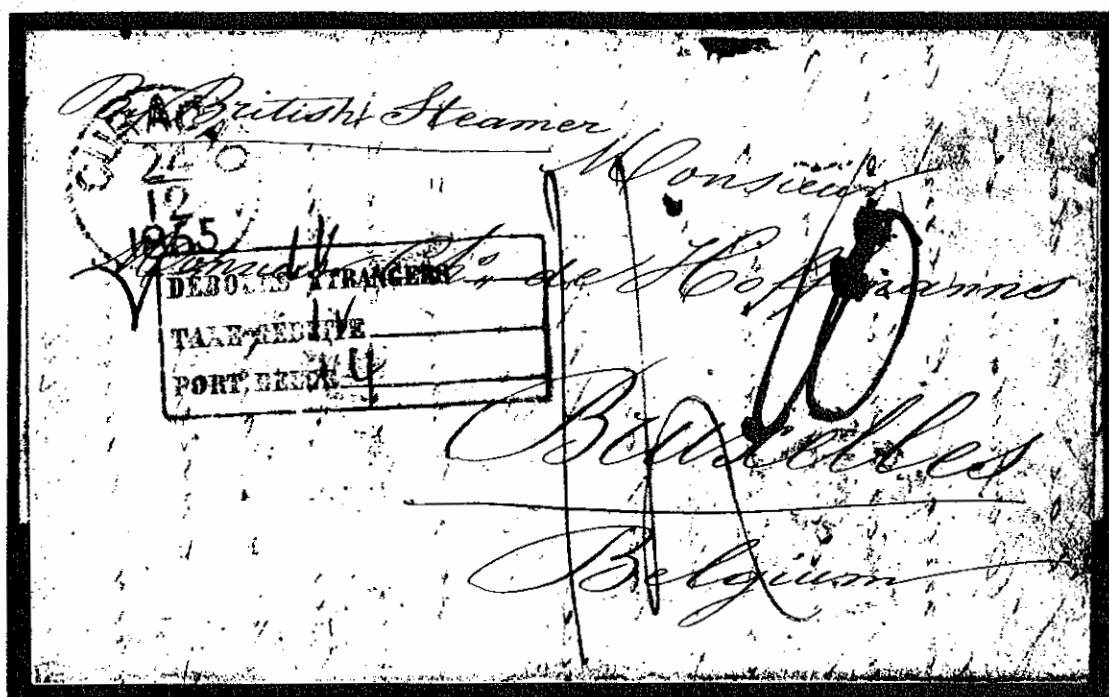 Per British Steamer
CURAÇAO
24
12
1865
Monsieur
de Hoffmanns
DEBOURS ETRANGERS 11
TAXE REDUITE 14
PORT BELGE 4
10
Bruxelles
Belgium